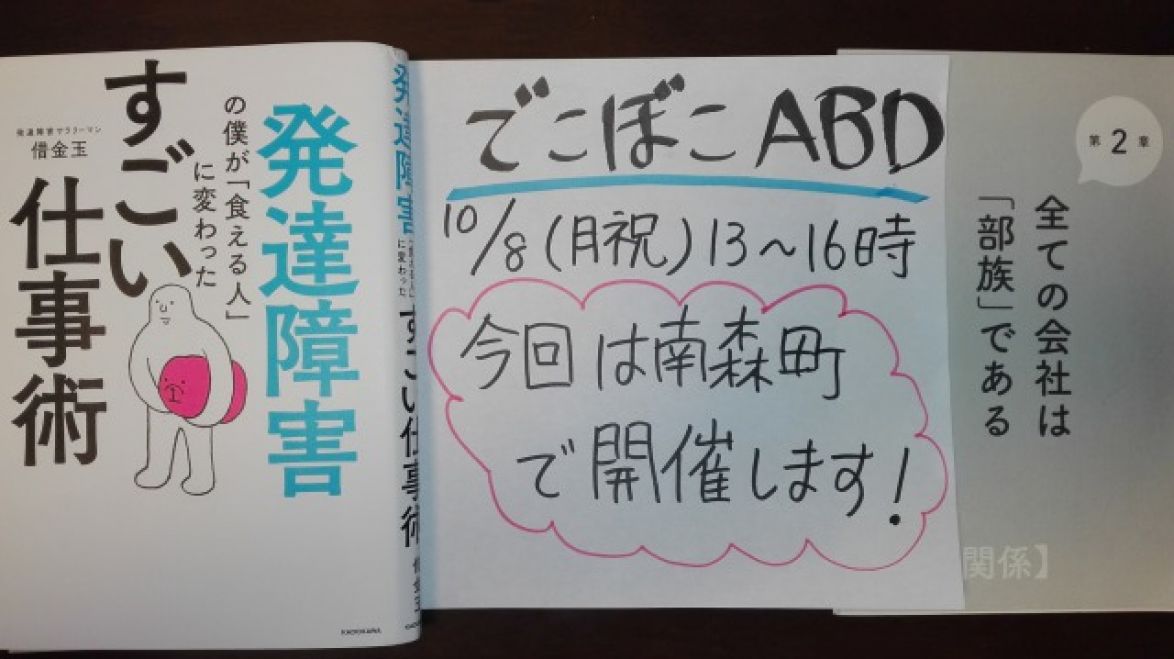 発達障害
の僕が「食える人」
に変わった
すごい
仕事術
発達障害サラリーマン
借金玉
KADOKAWA
発達障害
に変わった
すごい仕事術
借金玉
でこぼこABD
10/8(月祝)13〜16時
今回は南森町
で開催します!
第2章
全ての会社は
「部族」である
関係】